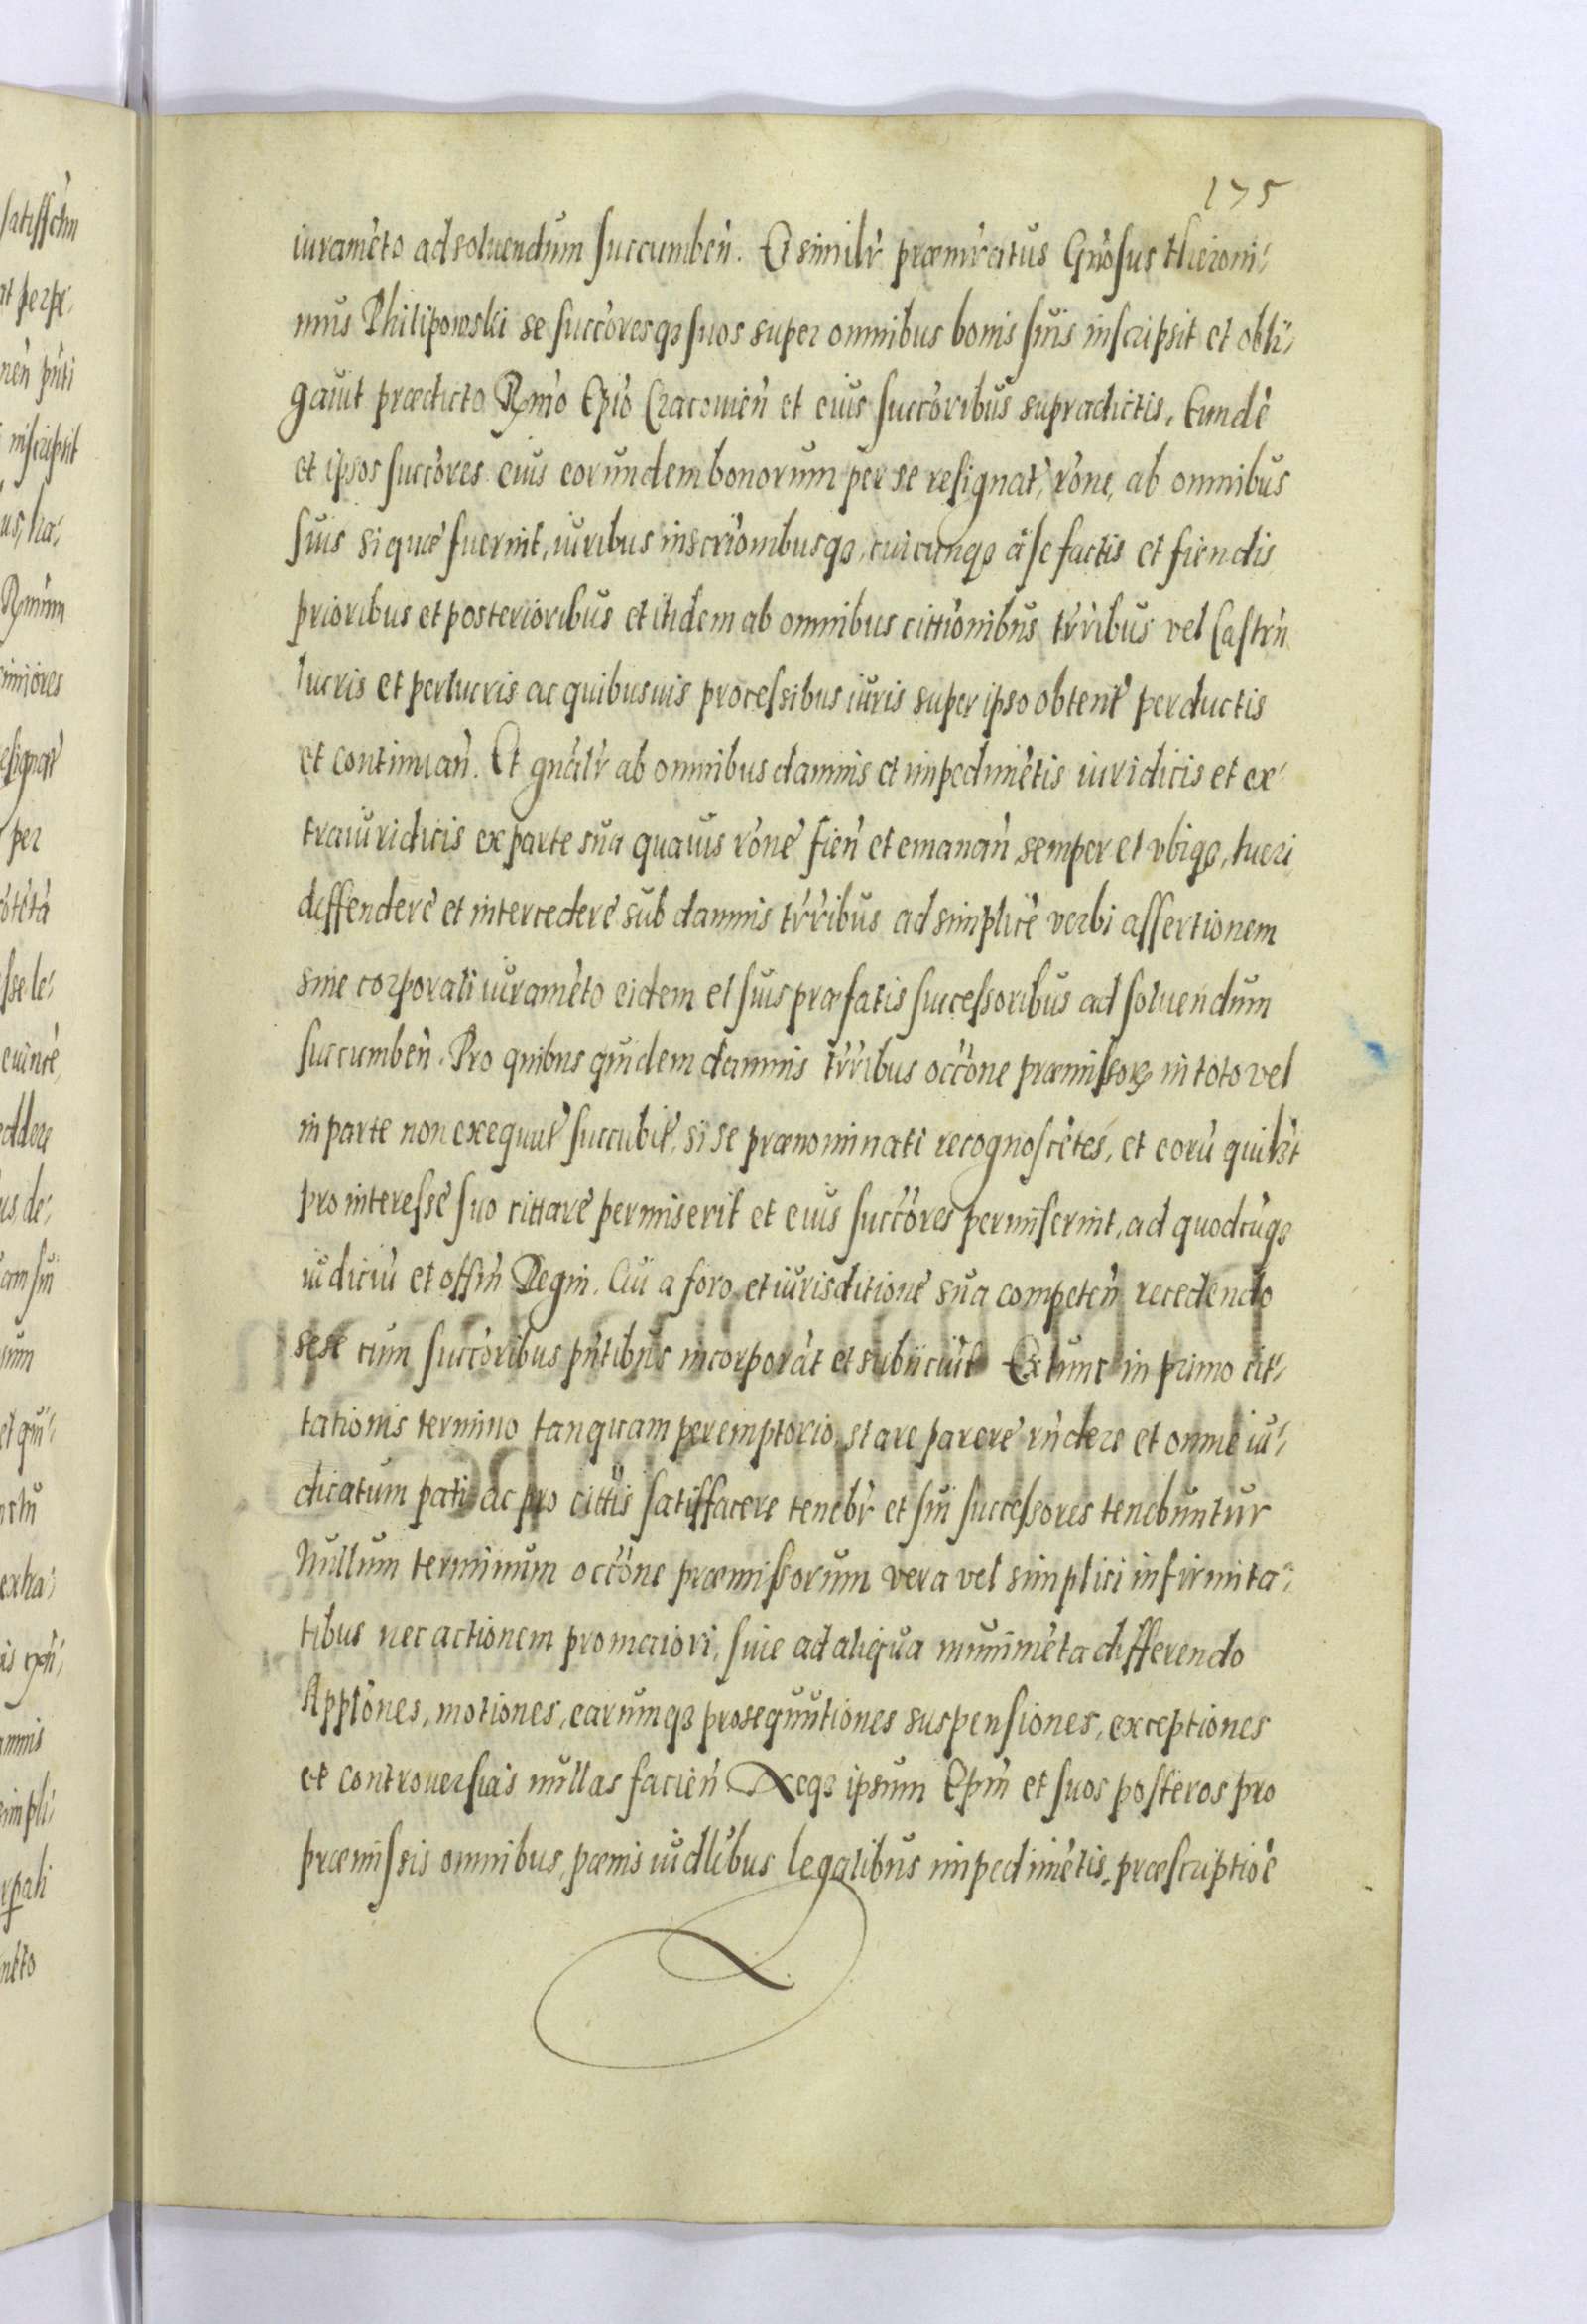 175
iuramēto ad soluendum succumben̄. Et similr̄ præmr̄atus Gn̄osus Hieroni-
mus Philipowski se succōresqꝫ suos super omnibus bonis suis inscripsit et obli-
gauit prædicto Rm̄o Ep̄io Cracouien̄ et eius succōribus supradictis, Eundē
et ipsos succōres eius eorundem bonorum per se resignat, rōne, ab omnibus
suis si quæ fuerint, iuribus inscrīonibusqꝫ, cuicunqꝫ a se factis et fiendis
prioribus et posterioribus et itidem ab omnibus cittīonibus tr̄ribus vel Castrn̄
lucris et perlucris ac quibusuis processibus iuris super ipso obtent̄ perductis
et continuan̄. Et gn̄alr̄ ab omnibus damnis et impedimētis iuridicis et ex-
traiuridicis ex parte sua quauis rōne fien̄ et emanan̄ semper et vbiqꝫ, tueri
diffendere et intercedere sub damnis tr̄ribus ad simplicē verbi assertionem
sine corporali iuramēto eidem et suis præfatis successoribus ad soluendum
succumben̄. Pro quibus quidem damnis tr̄ribus occōne præmissoꝝ in toto vel
in parte non exequut̄ succubit̄, si se prænominati recognoscētes, et eorū quilꝫt
pro interesse suo cittare permiserit et eius succōres permiserint, ad quodcūqꝫ
iudiciū et offin̄ Regin. Cui a foro et iurisditione sua competen̄ recedendo
sese cum succōribus pn̄tibus incorporāt et subiiciūt Extunc in primo cit-
tationis termino tanquam peremptorio, stare parere rn̄dere et omne iu-
dicatum pati ac pro cittis satisffacere tenebr̄ et sui successores tenebuntur
Nullum terminum occōne præmissorum vera vel simplici infirmita-
tibus nec actionem pro maiori, siue ad aliqua munimēta differendo
Applōnes, motiones, earumqꝫ prosequutiones suspensiones, exceptiones
et controuersias nullas facien̄ Neqꝫ ipsum Ep̄m et suos posteros pro
præmissis omnibus, pœnis iudlibus legalibus impedimētis, præscriptiōē